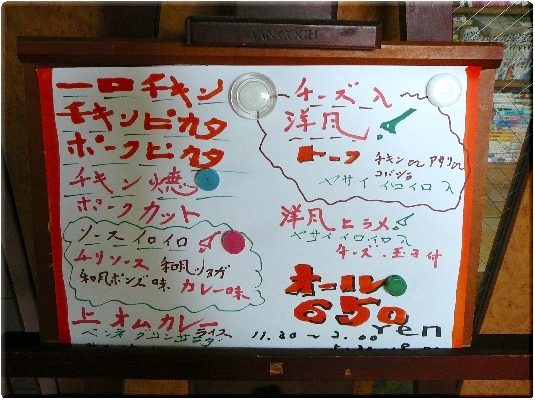 VAN GOGH
一口チキン
チキンピカタ
ポークピカタ
チキン焼
ポークカット
ソースイロイロ
ムリソース 和風ショウガ
和風ポンズ味 カレー味
上 オムカレー
ライス
チーズ入
洋風
トーフ チキン or アサリ or
ヤサイイロイロ入
洋風ヒラメ
ヤサイイロイロ入
チーズ・玉子付
オール
650
yen
11.30〜2.00